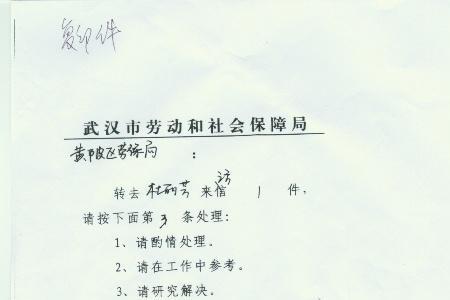 复印件
武汉市劳动和社会保障局
黄陂区劳保局:
转去杜丽芳来信访1件,
请按下面第3条处理:
1、请酌情处理。
2、请在工作中参考。
3、请研究解决。